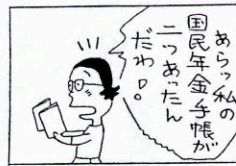 あらッ私の
国民年金手帳が
二つあったん
だわ!。